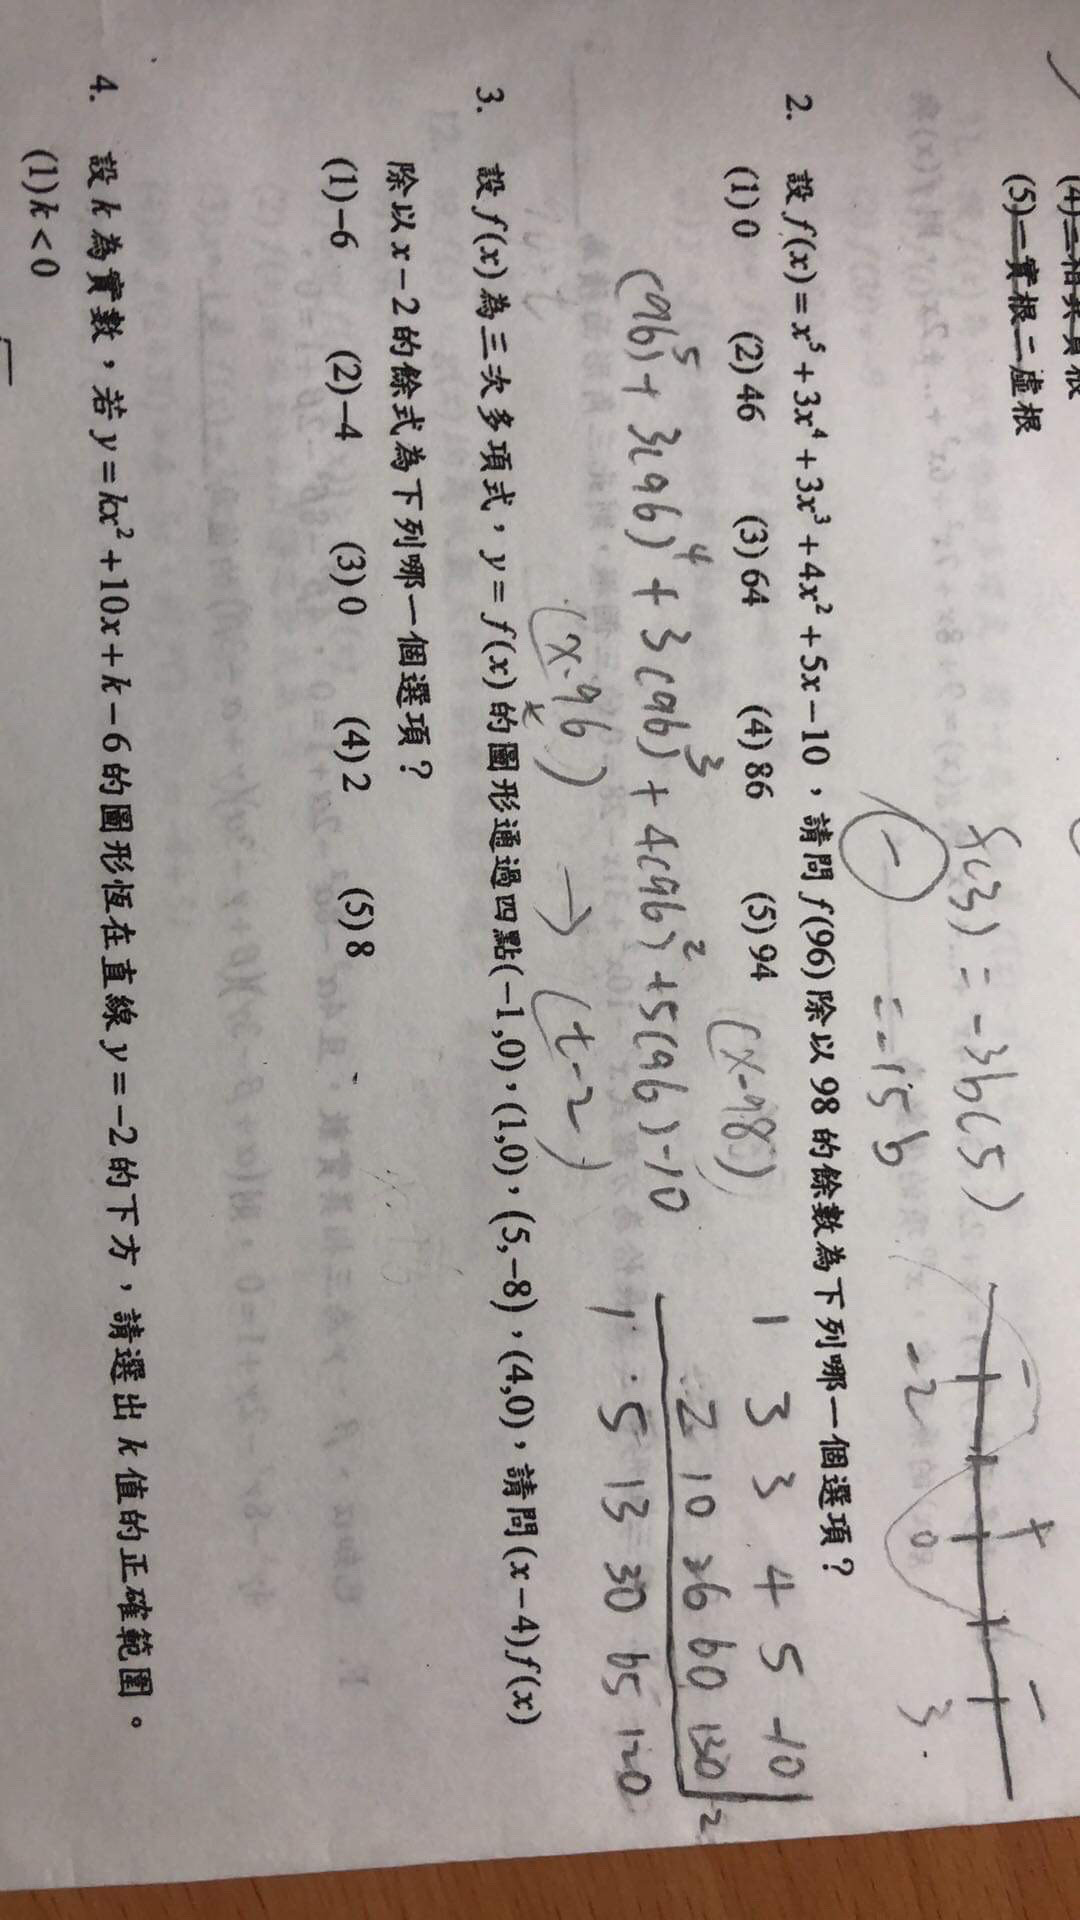 (5)一實根二虛根
f(3) = -3b(5)
= -15b
2. 設 f(x) = x⁵ + 3x⁴ + 3x³ + 4x² + 5x − 10，請問 f(96) 除以 98 的餘數為下列哪一個選項？
(1) 0 (2) 46 (3) 64 (4) 86 (5) 94
(x-98)
(96)⁵ + 3(96)⁴ + 3(96)³ + 4(96)² + 5(96) - 10
(x-96) → (t-2)
1 3 3 4 5 -10
2 10 26 60 130 2
1 5 13 30 65 120
3. 設 f(x) 為三次多項式，y = f(x) 的圖形通過四點(−1,0)，(1,0)，(5,−8)，(4,0)，請問(x−4)f(x)
除以 x−2 的餘式為下列哪一個選項？
(1)−6 (2)−4 (3) 0 (4) 2 (5) 8
4. 設 k 為實數，若 y = kx² + 10x + k − 6 的圖形恆在直線 y = −2 的下方，請選出 k 值的正確範圍。
(1) k < 0